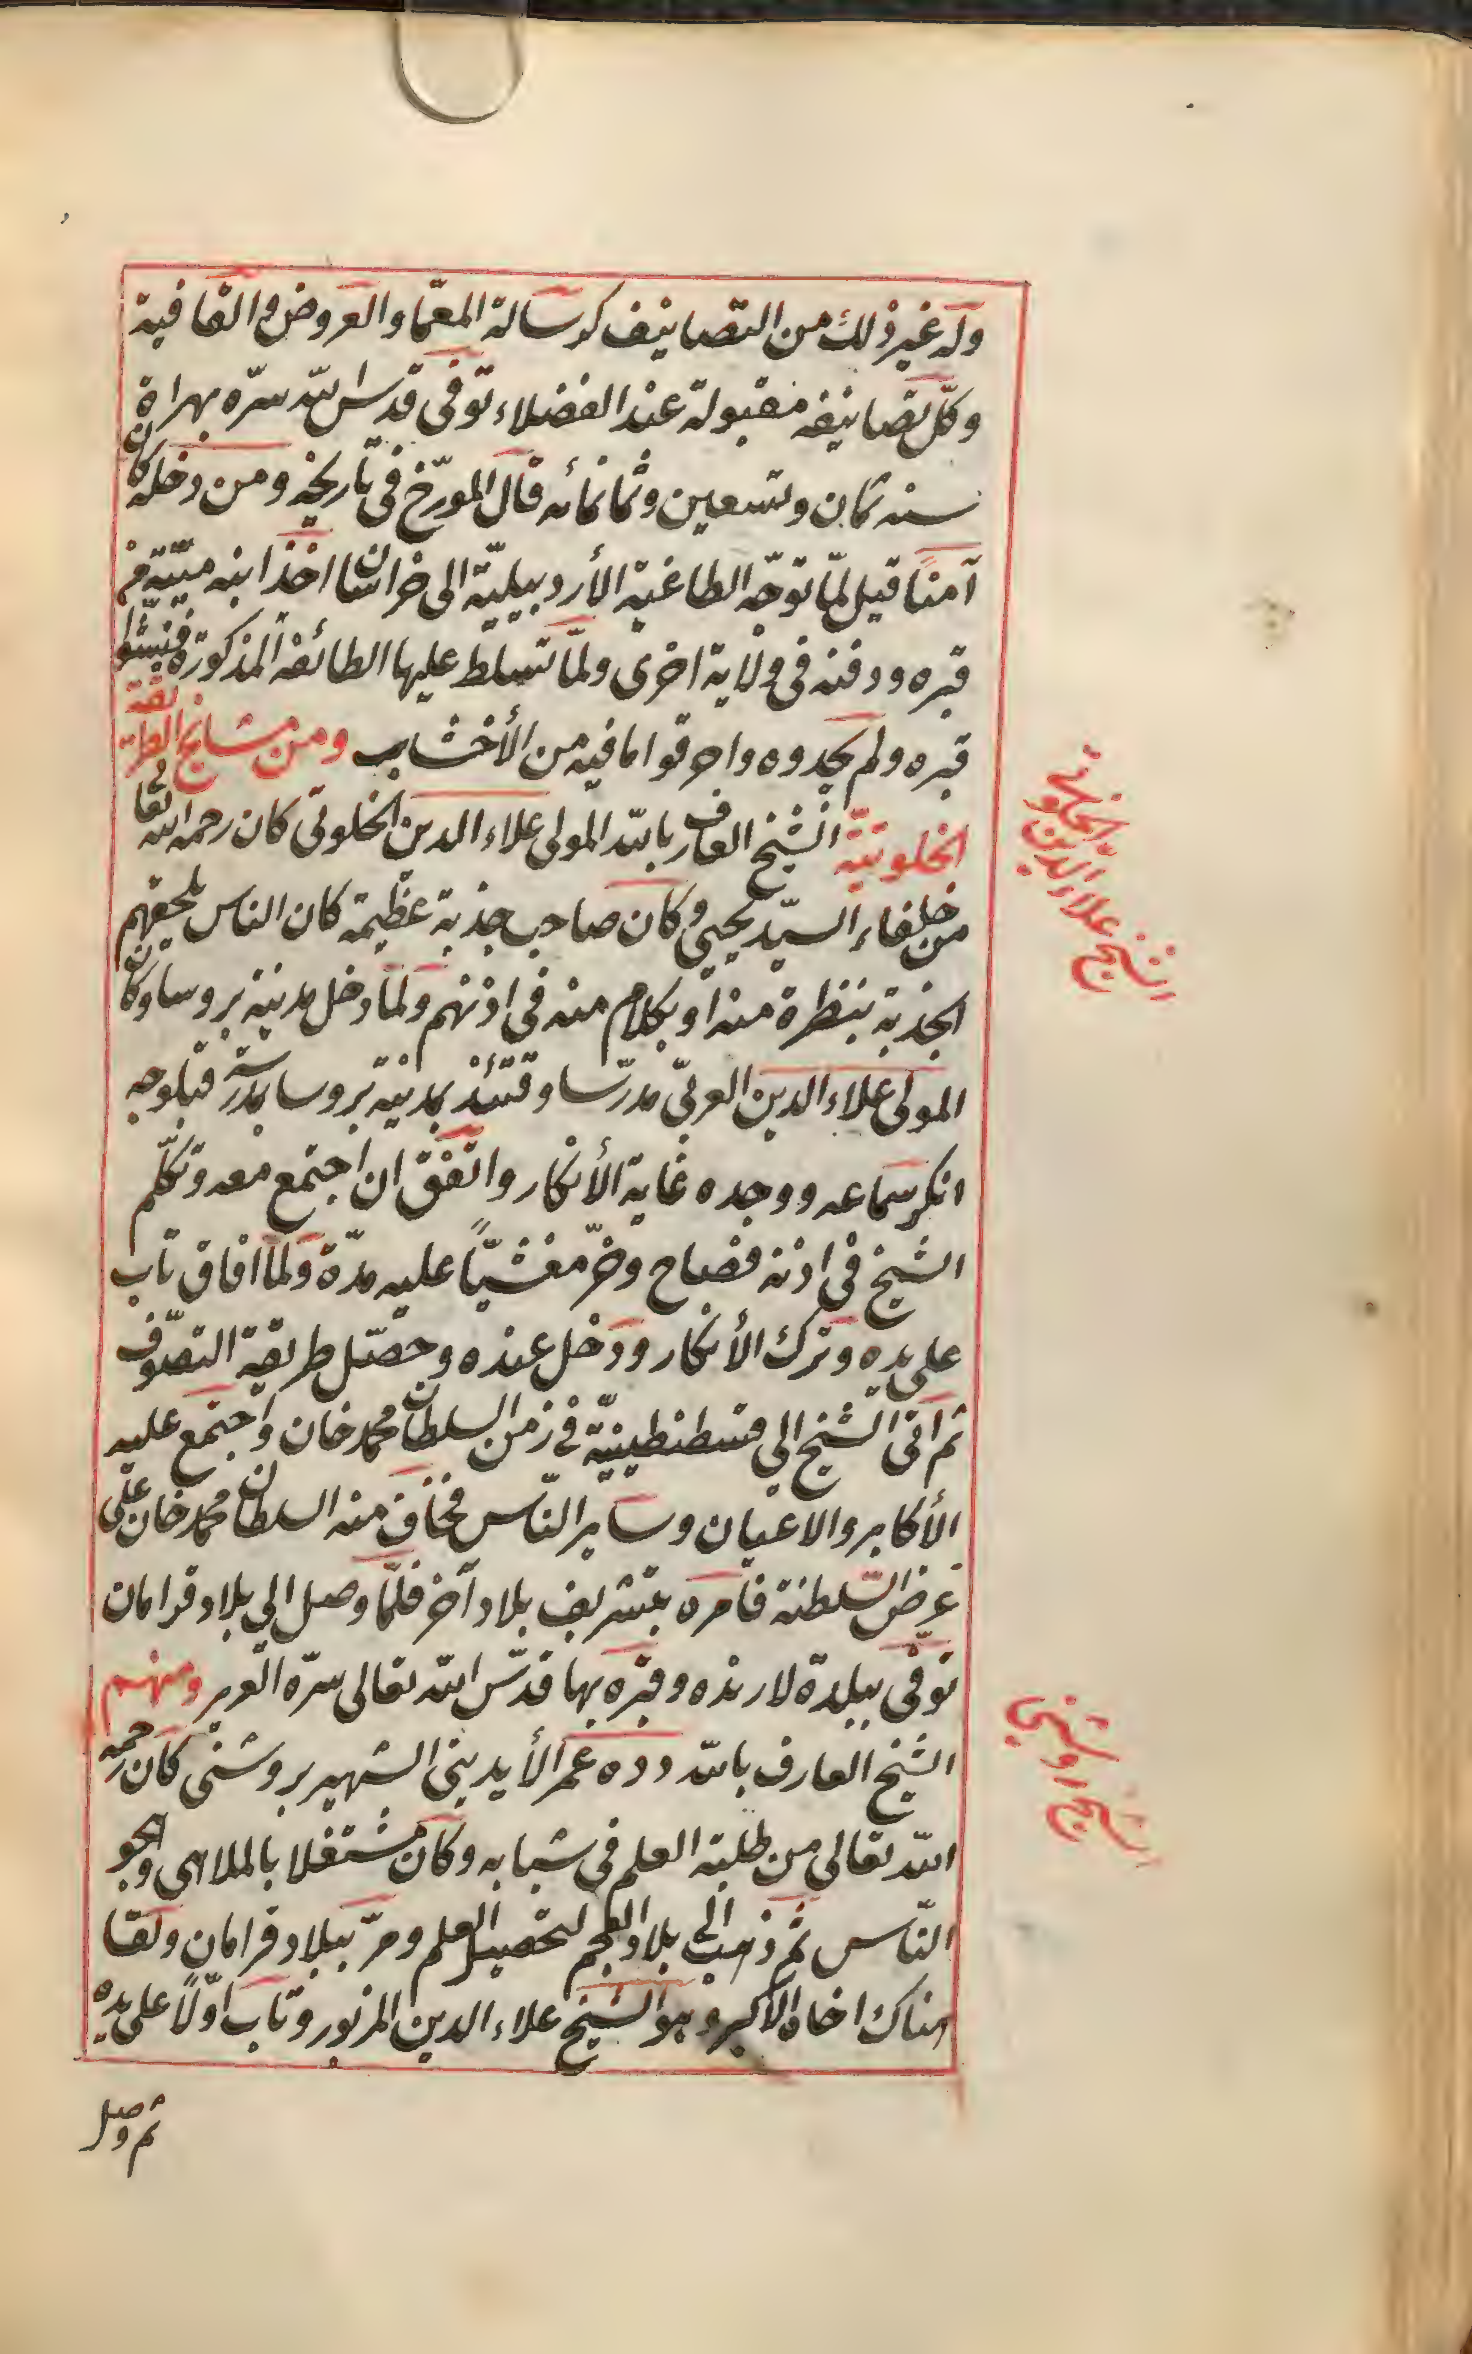 وله غير ذلك من التصانيف كرسالة المعمّا والعروض والقافية
وكلّ تصانيفه مقبولة عند الفضلاء توفى قدس الله سرّه بهراة
سنه ثمان وتسعين وثمانمائه قال المورّخ فى تاريخه ومن دخله كان
آمنًا قيل لمّا توجّه الطاغية الأردبيليّة الى خراسان اخذ ابنه ميّته من
قبره ودفنه فى ولاية اخرى ولمّا تسلط عليها الطائفة المذكورة فتشوا
قبره ولم يجدوه واحرقوا ما فيه من الأخشاب ومن مشايخ الطريقة
الخلوتيّة الشيخ العارف بالله المولى علاء الدين الخلوتى كان رحمه الله تعالى
من خلفاء السيّد يحيى وكان صاحب جذبة عظيمة كان الناس يلحقهم
الجذبة بنظرة منه او بكلام منه فى اذنهم ولمّا دخل مدينة بروسا وكان
المولى علاء الدين العربىّ مدرّسا وقتئذ بمدينة بروسا بمدرسة قبلوجه
انكر سماعه ووجده غاية الأنكار واتفق ان اجتمع معه وتكلّم
الشيخ فى اذنه فصاح وخرّ مغشيّاً عليه مدّة ولمّا افاق تاب
على يده وترك الأنكار ودخل عنده وحصّل طريقة التصوّف
ثم اتى الشيخ الي قسطنطينيّة في زمن السلطان محمد خان واجتمع عليه
الأكابر والاعيان وساير النّاس فخاف منه السلطان محمد خان على
عرض السّلطنة فأمره بتشريف بلاد آخر فلمّا وصل الي بلاد قرامان
توفّى ببلدة لارنده وقبره بها قدّس الله تعالى سرّه العزيز ومنهم
الشيخ العارف بالله دده عمر الأيدينى الشهير بروشنى كان رحمه
الله تعالى من طلبة العلم فى شبابه وكان مشتغلا بالملاهى وهجو
النّاس ثم ذهب الى بلاد العجم لتحصيل العلم ومرّ ببلاد قرامان ولقا
هناك اخاه الأكبر وهو الشيخ علاء الدين المزبور وتاب اوّلاً على يده
ثم وصل
الشيخ علاء الدين الخلوتي
الشيخ روشنى